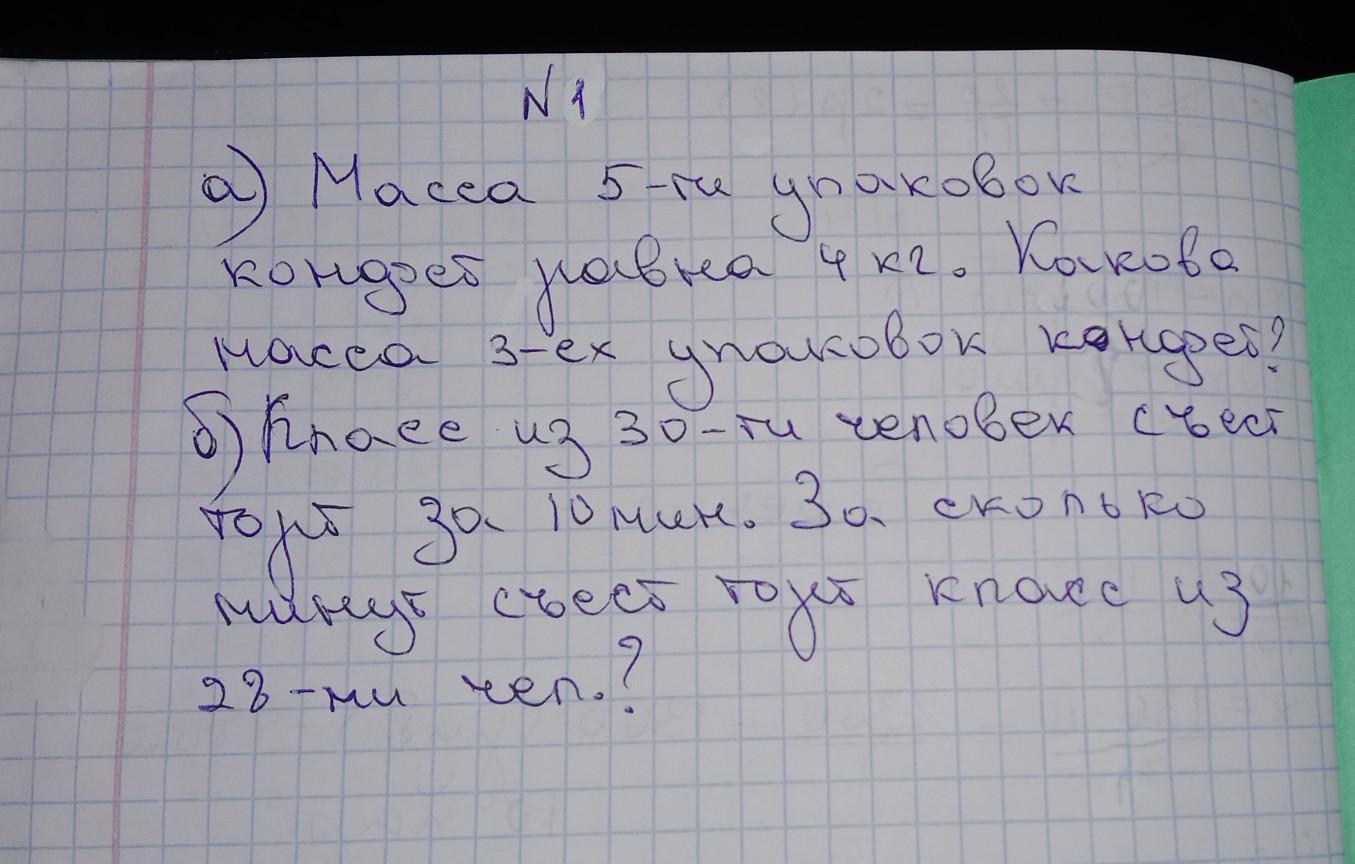 N 1
а) Масса 5-ти упаковок
конфет равна 4 кг. Какова
масса 3-ех упаковок конфет?
б) Класс из 30-ти человек съест
торт за 10 мин. За сколько
минут съест торт класс из
28-ми чел.?